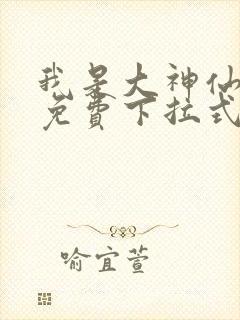 我是大神仙
免費下拉式
喻宜萱